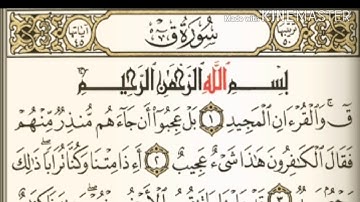 Made with KINEMASTER
سُورَةُ ق
بِسْمِ اللَّهِ الرَّحْمَٰنِ الرَّحِيمِ
قٓ ۚ وَالْقُرْءَانِ الْمَجِيدِ ١ بَلْ عَجِبُوٓا أَن جَآءَهُم مُّنذِرٌ مِّنْهُمْ
فَقَالَ الْكَٰفِرُونَ هَٰذَا شَىْءٌ عَجِيبٌ ٢ أَءِذَا مِتْنَا وَكُنَّا تُرَابًا ۖ ذَٰلِكَ